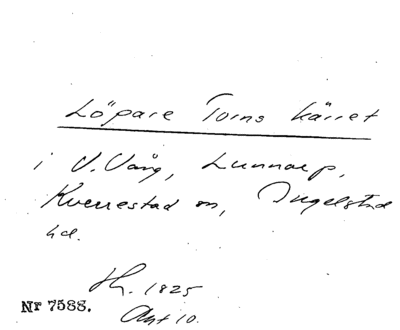 Löpare Torns kärret
i V. Vång, Lunnarp,
Kverrestad sn, Ingelstad
hd.
Hh. 1825
Akt 10.
Nr 7588.